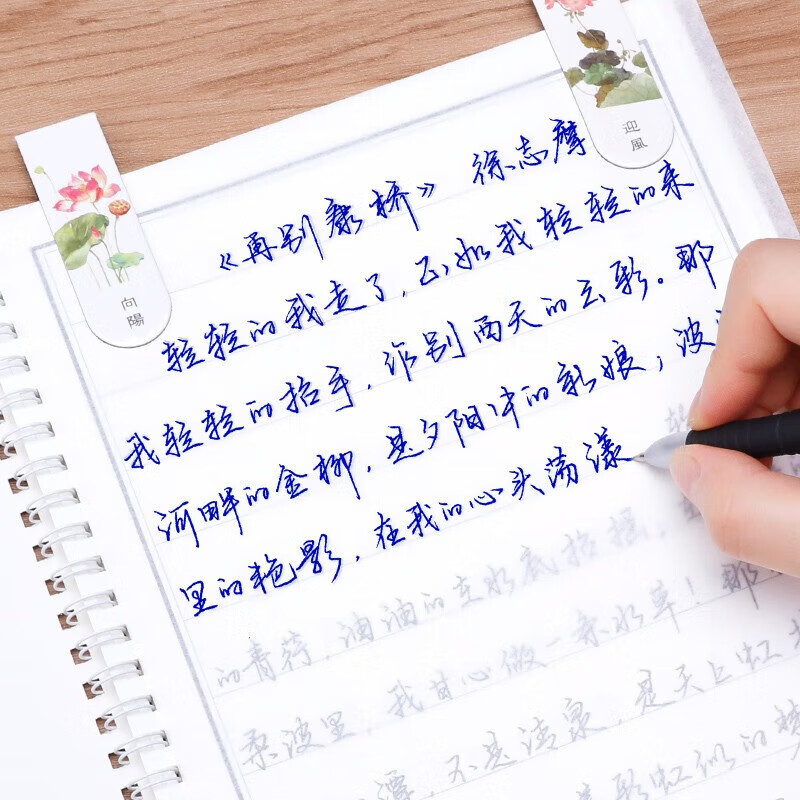 向陽
迎風
《再别康桥》 徐志摩
轻轻的我走了，正如我轻轻的来
我轻轻的招手，作别西天的云彩。那
河畔的金柳，是夕阳中的新娘；波
里的艳影，在我的心头荡漾
的青荇，油油的在水底招摇，
柔波里，我甘心做一条水草！那
潭，不是清泉，是天上虹
彩虹似的梦